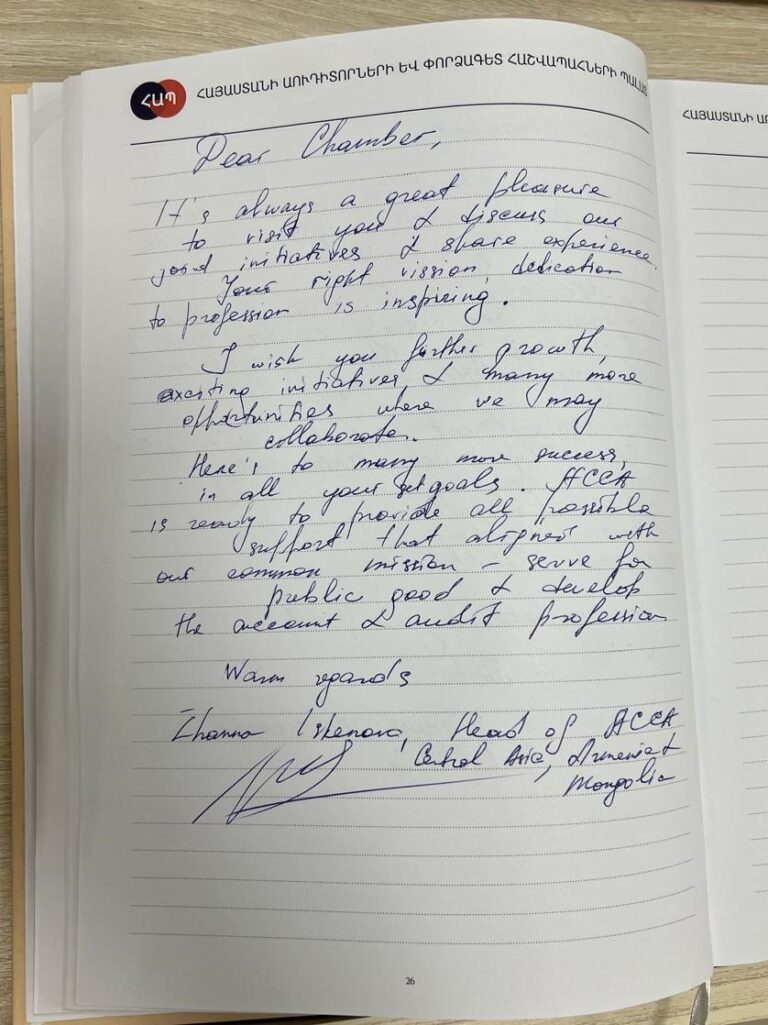 ՀԱՊ
ՀԱՅԱՍՏԱՆԻ ԱՈՒԴԻՏՈՐՆԵՐԻ ԵՎ ՓՈՐՁԱԳԵՏ ՀԱՇՎԱՊԱՀՆԵՐԻ ՊԱԼԱՏ
ՀԱՅԱՍՏԱՆԻ
Dear Chamber,
It's always a great pleasure
to visit you & discuss our
good initiatives & share experience.
Your right vission, dedication
to profession is inspiring.
I wish you further growth,
exciting initiatives & many more
opportunities where we may
collaborate.
Here's to many more success,
in all your set goals. ACCA
is ready to provide all possible
support that aligned with
our common mission - serve for
public good & develop
the account & audit profession
Warm regards
Zhanna Iskenova, Head of ACCA
Central Asia, Armenia &
Mongolia
26